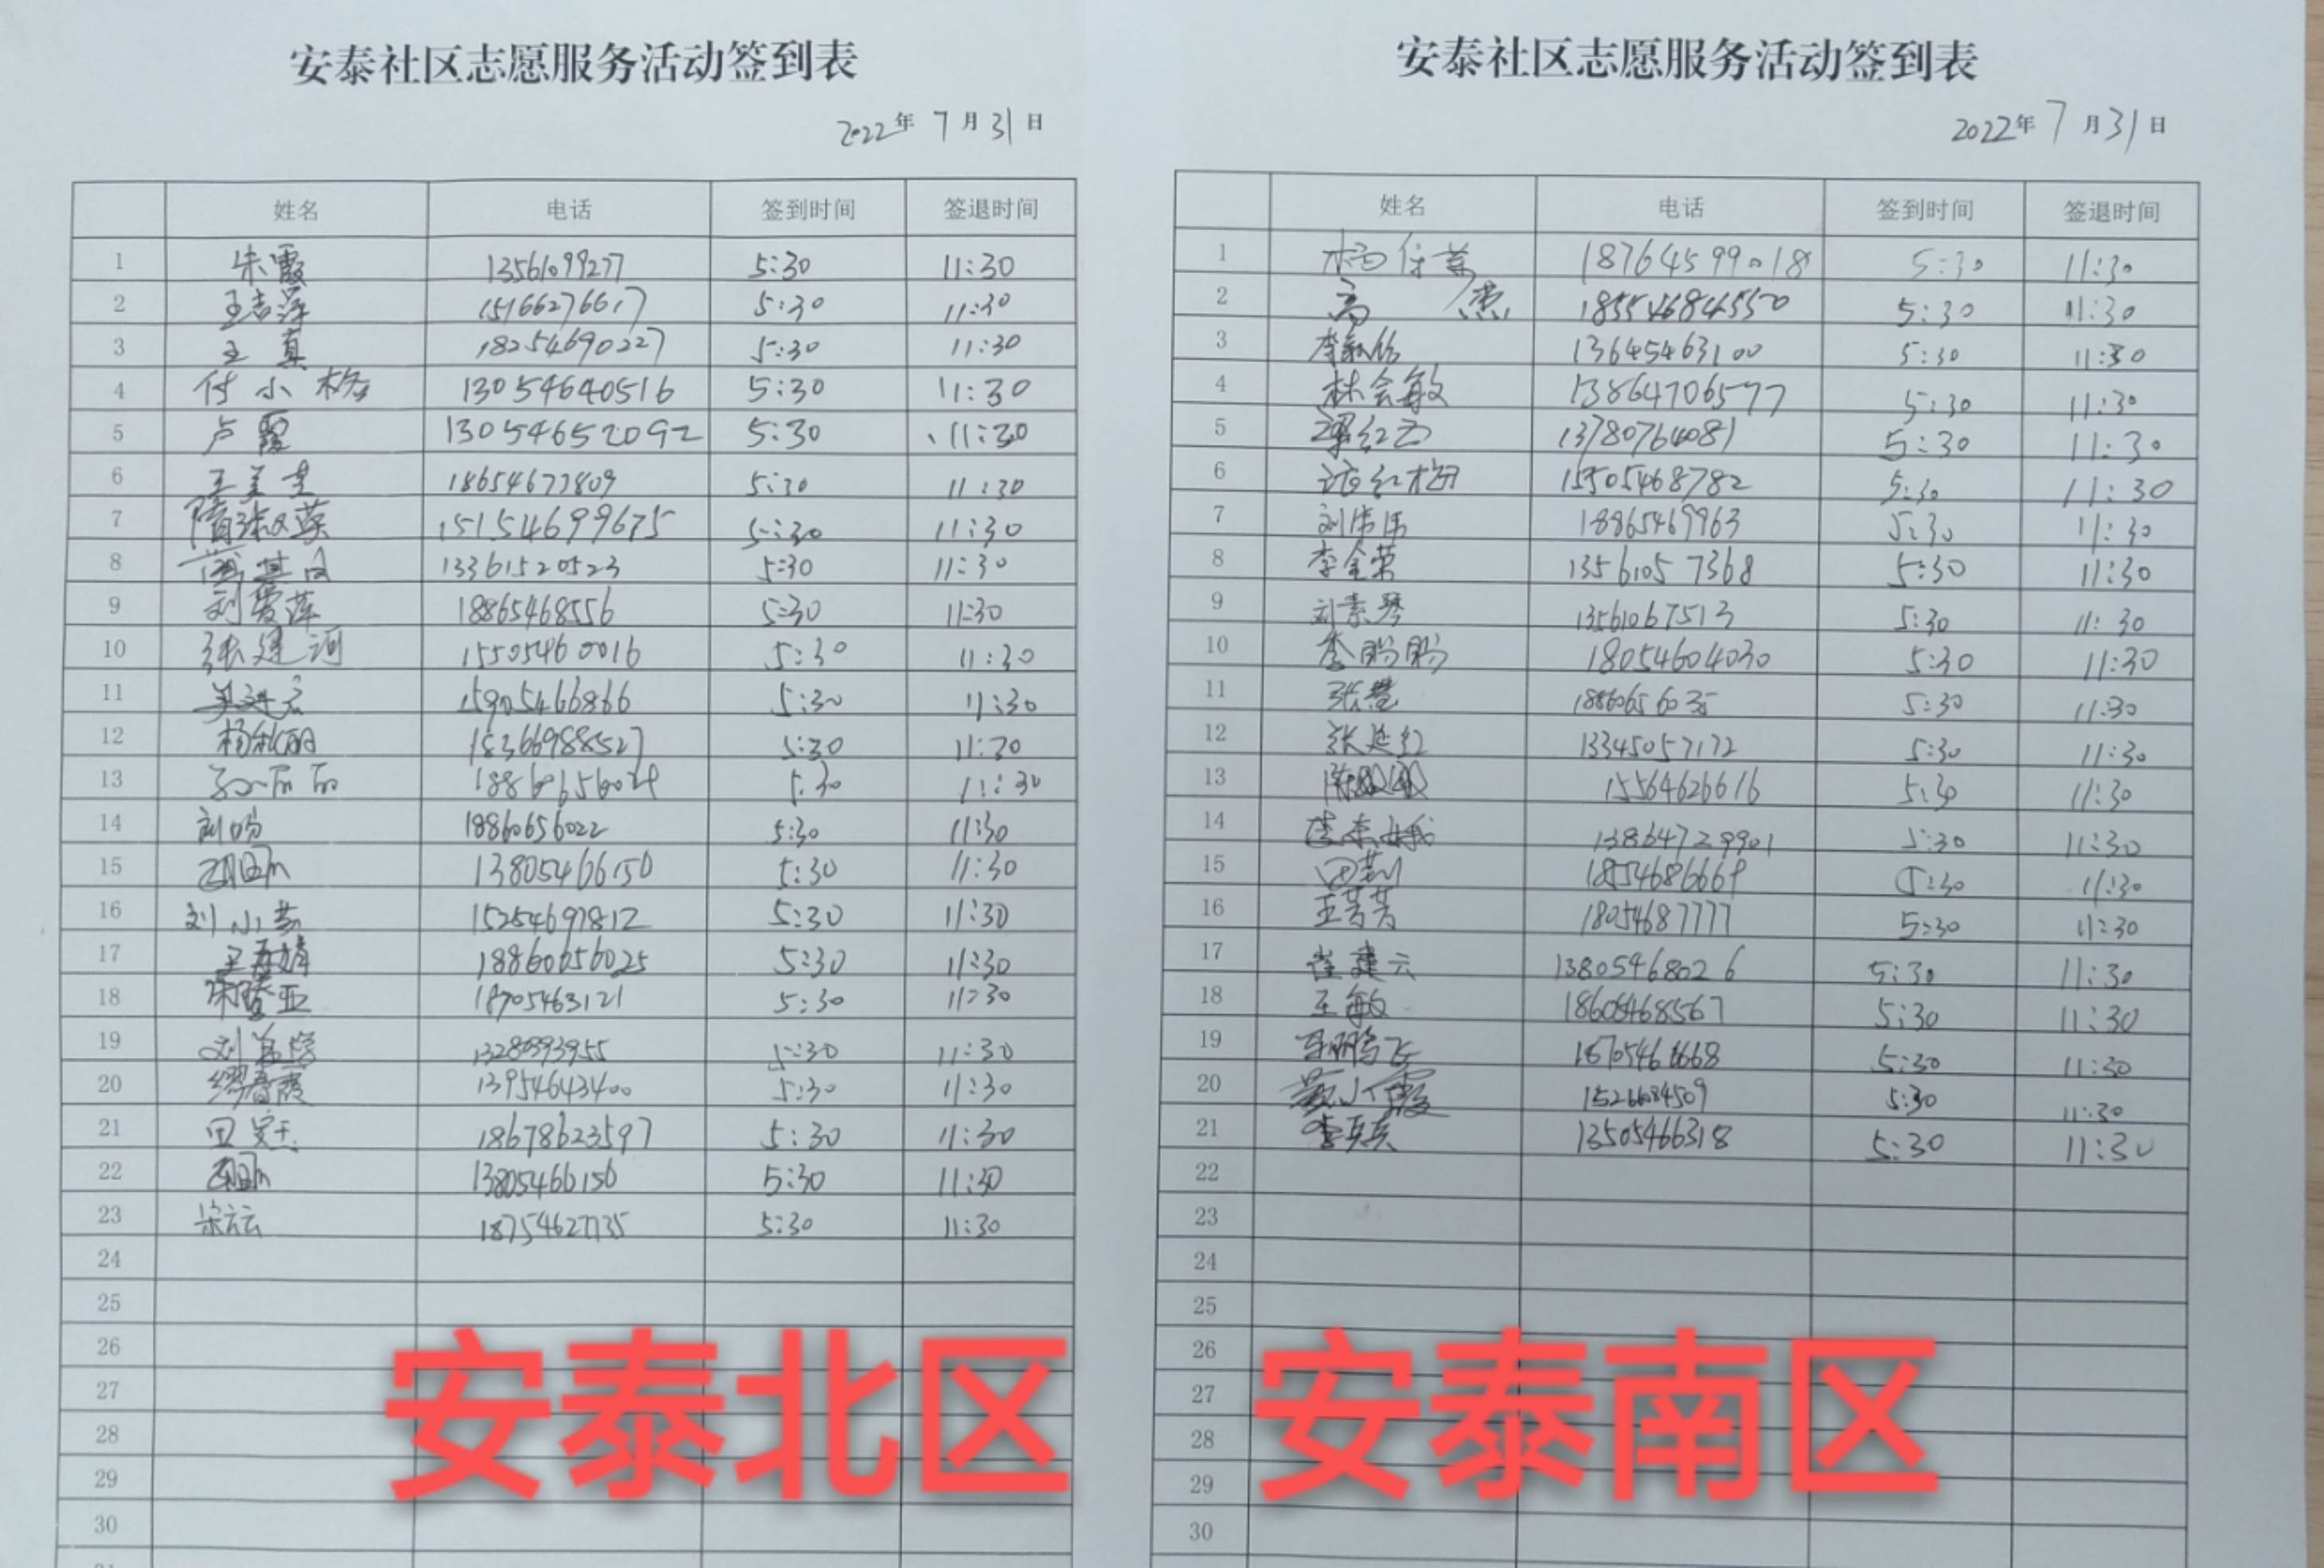 安泰社区志愿服务活动签到表
2022年7月31日
姓名 电话 签到时间 签退时间
1 朱霞 13561099277 5:30 11:30
2 王志萍 15166276617 5:30 11:30
3 王真 18254690227 5:30 11:30
4 付小格 13054640516 5:30 11:30
5 卢霞 13054652092 5:30 11:30
6 5:30 11:30
7 隋淑英 15154699675 5:30 11:30
8 13361520523 5:30 11:30
9 刘爱萍 18865468556 5:30 11:30
10 张建河 15505460016 5:30 11:30
11 15905466866 5:30 11:30
12 杨秋丽 15366988527 5:30 11:30
13 孙丽丽 5:30 11:30
14 18860656022 5:30 11:30
15 13805466150 5:30 11:30
16 刘小芬 15254697812 5:30 11:30
17 18860656025 5:30 11:30
18 18705463121 5:30 11:30
19 13280393955 5:30 11:30
20 缪春霞 13954643400 5:30 11:30
21 18678623597 5:30 11:30
22 13805466150 5:30 11:30
23 宋云云 18754627135 5:30 11:30
24
25
26
27
28
29
30
安泰北区
安泰社区志愿服务活动签到表
2022年7月31日
姓名 电话 签到时间 签退时间
1 18764599018 5:30 11:30
2 高杰 18554684550 5:30 11:30
3 13645463100 5:30 11:30
4 林会敏 13864706577 5:30 11:30
5 13780764081 5:30 11:30
6 15505468782 5:30 11:30
7 刘伟伟 18865469963 5:30 11:30
8 李金荣 13561057368 5:30 11:30
9 刘素琴 13561067513 5:30 11:30
10 李盼盼 18054604030 5:30 11:30
11 18860656035 5:30 11:30
12 张延红 13345057172 5:30 11:30
13 15564626616 5:30 11:30
14 13864729901 5:30 11:30
15 田莉 5:30 11:30
16 王芳芳 18054687777 5:30 11:30
17 崔建云 13805468026 5:30 11:30
18 王敏 18605468567 5:30 11:30
19 5:30 11:30
20 5:30 11:30
21 李兵兵 13505466318 5:30 11:30
22
23
24
25
26
27
28
29
30
安泰南区